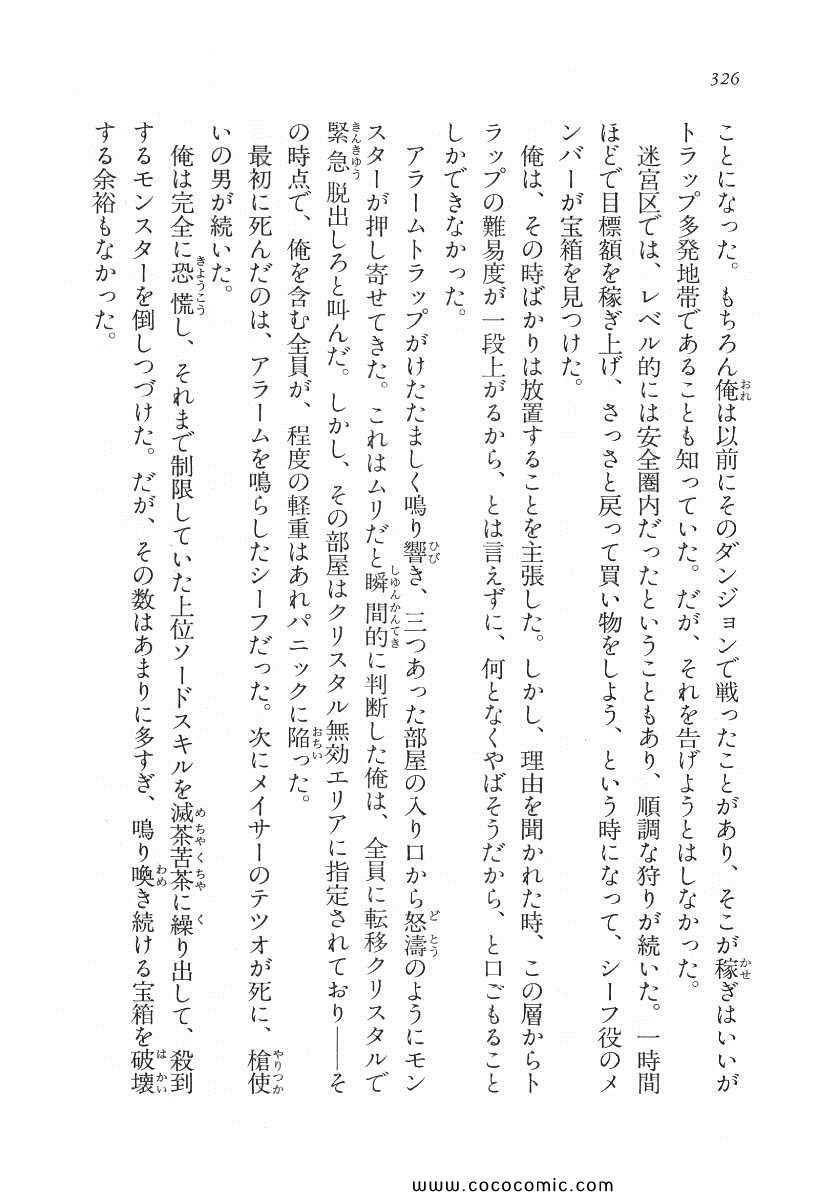 326
ことになった。もちろん俺は以前にそのダンジョンで戦ったことがあり、そこが稼ぎはいいが
トラップ多発地帯であることも知っていた。だが、それを告げようとはしなかった。
迷宮区では、レベル的には安全圏内だったということもあり、順調な狩りが続いた。一時間
ほどで目標額を稼ぎ上げ、さっさと戻って買い物をしよう、という時になって、シーフ役のメ
ンバーが宝箱を見つけた。
俺は、その時ばかりは放置することを主張した。しかし、理由を聞かれた時、この層からト
ラップの難易度が一段上がるから、とは言えずに、何となくやばそうだから、と口ごもること
しかできなかった。
アラームトラップがけたたましく鳴り響き、三つあった部屋の入り口から怒濤のようにモン
スターが押し寄せてきた。これはムリだと瞬間的に判断した俺は、全員に転移クリスタルで
緊急脱出しろと叫んだ。しかし、その部屋はクリスタル無効エリアに指定されており――そ
の時点で、俺を含む全員が、程度の軽重はあれパニックに陥った。
最初に死んだのは、アラームを鳴らしたシーフだった。次にメイサーのテツオが死に、槍使
いの男が続いた。
俺は完全に恐慌し、それまで制限していた上位ソードスキルを滅茶苦茶に繰り出して、殺到
するモンスターを倒しつづけた。だが、その数はあまりに多すぎ、鳴り喚き続ける宝箱を破壊
する余裕もなかった。
www.cococomic.com/